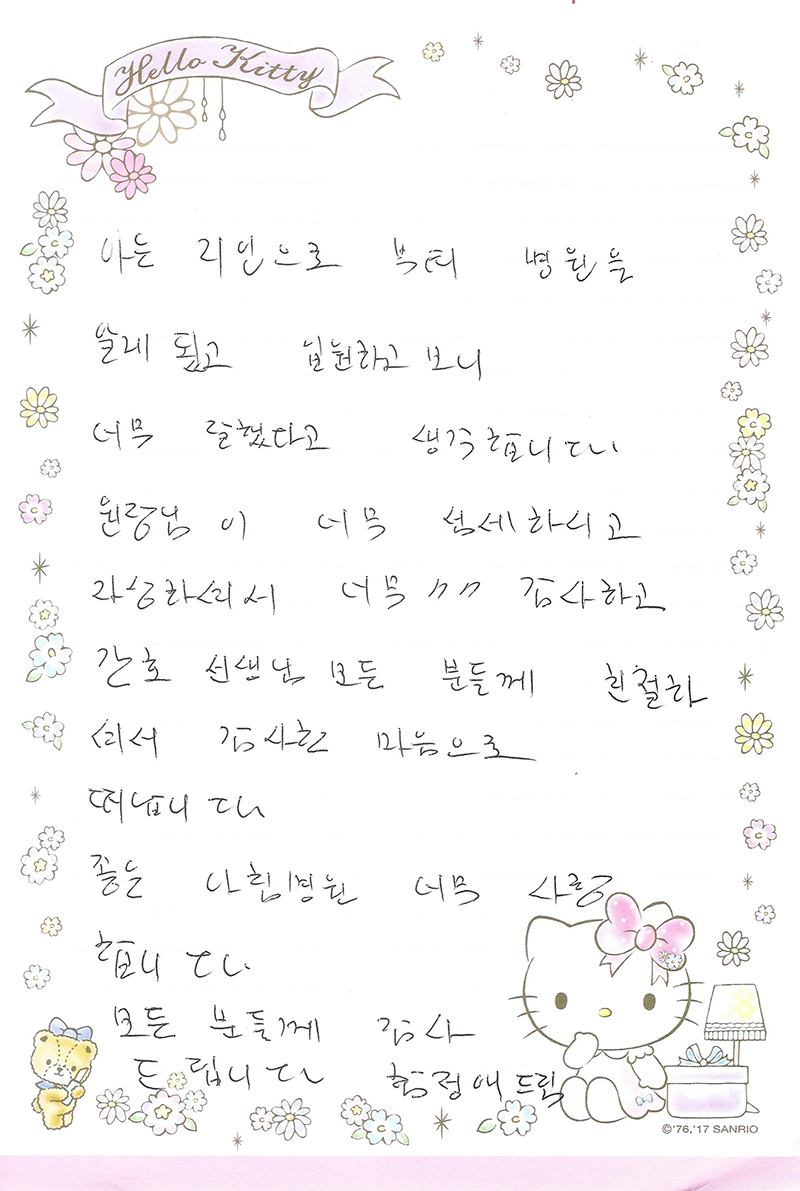 Hello Kitty
아는 지인으로 부터 병원을
알게 됬고 입원하고 보니
너무 잘했다고 생각합니다
원장님 이 너무 섬세하시고
자상하셔서 너무 〃 감사하고
간호 선생님 모든 분들께 친절하
셔서 감사한 마음으로
떠납니다
좋은 아침병원 너무 사랑
합니다
모든 분들께 감사
드립니다 정애드림
©'76,'17 SANRIO